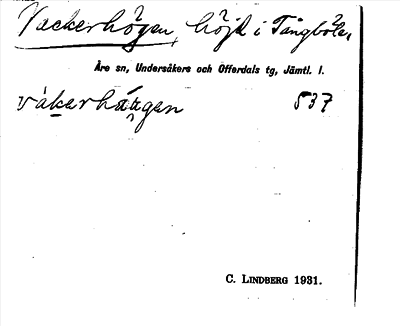 Vackerhögen, höjd i Tångböle,
Åre sn, Undersåkers och Offerdals tg, Jämtl. l.
våkerhåagen 537
C. LINDBERG 1931.